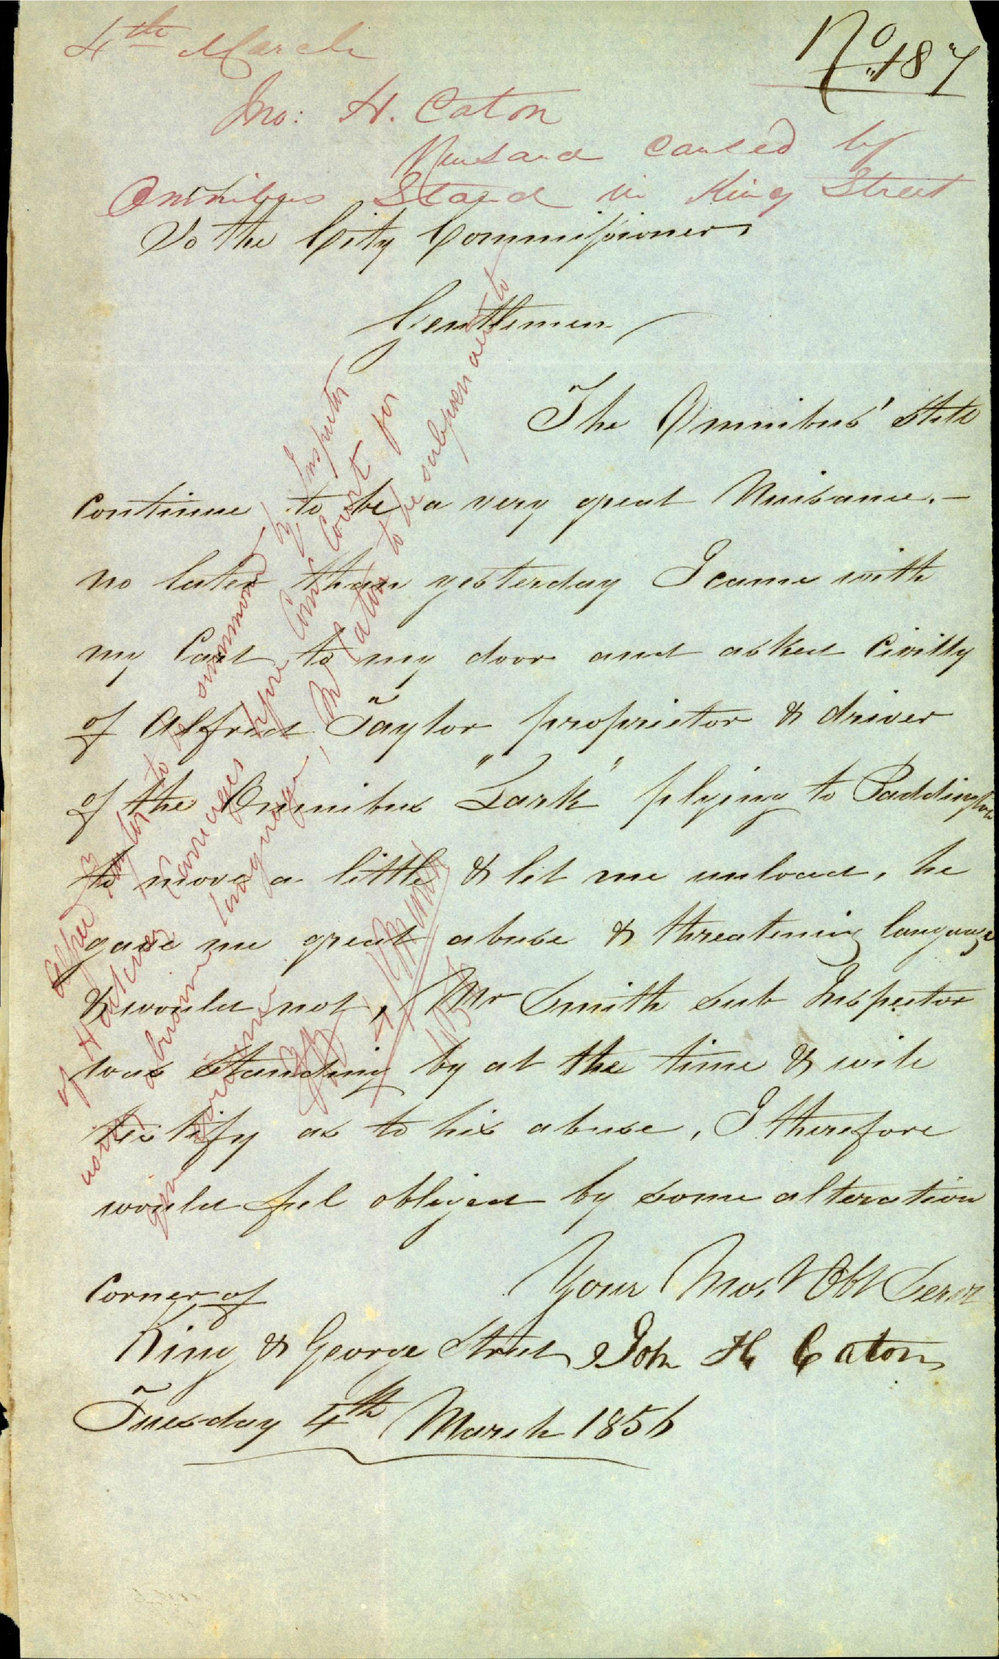 4th March
No. 187
Jno: H. Caton
Nuisance caused by
Omnibus Stand in King Street
To the City Commissioners
Gentlemen
The Omnibus' still
continue to be a very great Nuisance. –
no later than yesterday I came with
my Cart to my door and asked Civilly
of Alfred Taylor proprietor & driver
of the Omnibus "Lark" plying to Paddington
to move a little & let me unload, he
gave me great abuse & threatening language
& would not, Mr Smith Sub Inspector
was standing by at the time & will
testify as to his abuse, I therefore
would feel obliged by some alteration
Your Most Obt Servt
Corner of
King & George Street John H Caton
Tuesday 4th March 1856
Alfred Taylor to be summoned by Inspector
of Hackney Carriages before Comrs Court for
using abusive language, Mr Caton to be subpoenaed to
give evidence
4 March
1856